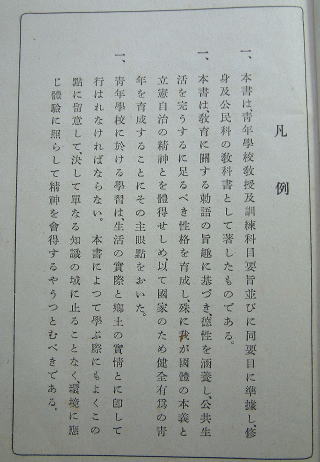 凡例
一、本書は、青年學校敎授及訓練科目要旨並びに同要目に準據し、修
身及公民科の敎科書として著したものである。
一、本書は敎育に關する勅語の旨趣に基づき、德性を涵養し、公共生
活を完うするに足るべき性格を育成し、殊に我が國體の本義と
立憲自治の精神とを體得せしめ以て國家のため健全有爲の靑
年を育成することにその主眼點をおいた。
一、靑年學校に於ける學習は、生活の實際と鄕土の實情とに卽して
行はれなければならない。本書によつて學ぶ際にもよくこの
點に留意して、決して單なる知識の域に止ることなく、環境に應
じ體驗に照らして精神を會得するやうつとむべきである。